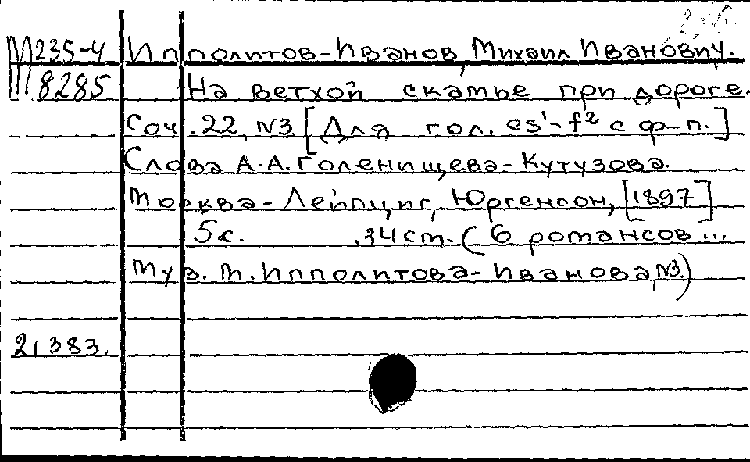 М235-4 Ипполитов-Иванов, Михаил Иванович.
М8285 На ветхой скамье при дороге.
Соч. 22, №3 [Для гол. es¹-f² с ф-п.]
Слова А.А. Голенищева-Кутузова.
Москва-Лейпциг, Юргенсон, [1897]
5с. 34 ст. (6 романсов...
Муз. М. Ипполитова-Иванова, №3)
21383.